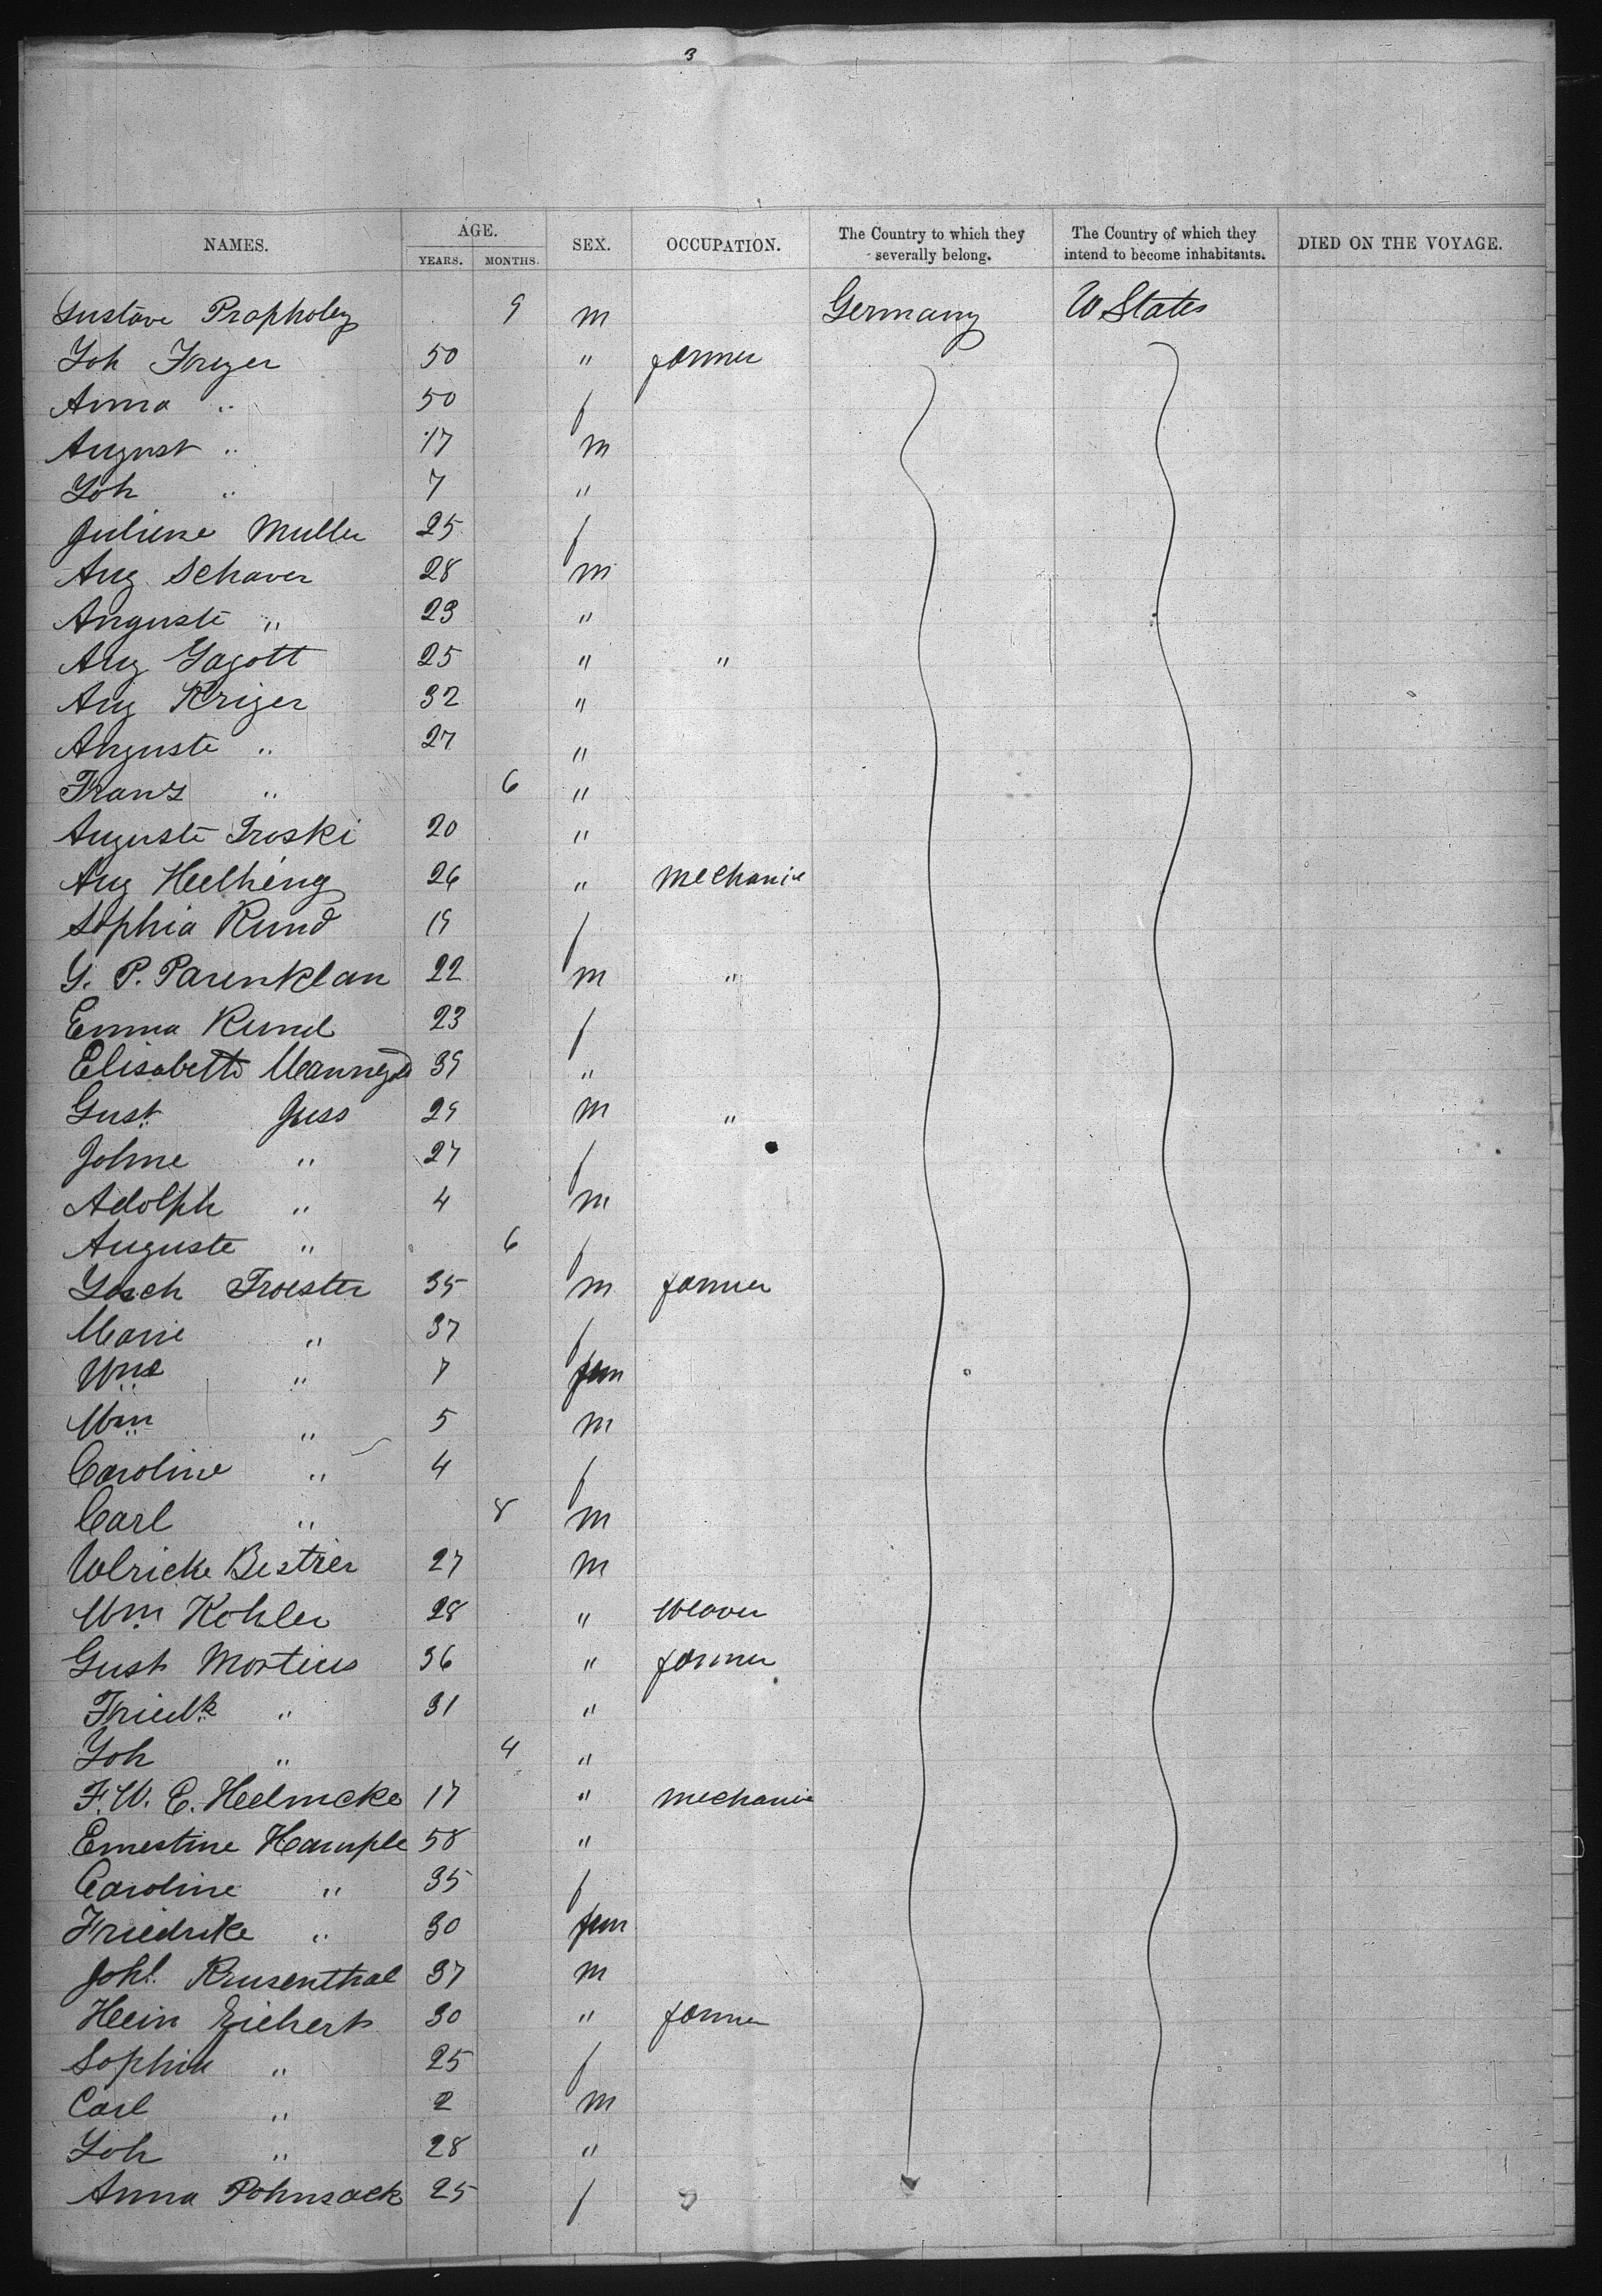 3
NAMES. AGE. SEX. OCCUPATION. The Country to which they severally belong. The Country of which they intend to become inhabitants. DIED ON THE VOYAGE.
YEARS. MONTHS.
Gustave Propholez 9 m Germany U States
Joh Frezer 50 " farmer
Anna " 50 f
August " 17 m
Joh " 7 "
Juliene Muller 25 f
Aug Schaver 28 m
Auguste " 23 "
Aug Gagott 25 " "
Aug Kriger 32 "
Auguste " 27 "
Franz " 6 "
Auguste Troski 20 "
Aug Helhing 26 " mechanic
Sophia Rund 19 f
G. P. Parenklan 22 m "
Emma Rund 23 f
Elisabeth 39 "
Gust Juss 29 m "
Johne " 27 f
Adolph " 4 m
Auguste " 6 f
Joch Troester 35 m farmer
Marie " 37 f
Wne " 7 fem
Wm " 5 m
Caroline " 4 f
Carl " 8 m
Ulricke Bestrier 27 m
Wm Kohler 28 " weaver
Gust Mortius 36 " farmer
Friedk " 31 "
Joh " 4 "
F. W. C. Helmcke 17 " mechanic
Ernestine Hample 58 "
Caroline " 35 f
Friedrike " 30 fem
Joh! Krusenthal 37 m
Hein Eichert 30 " farmer
Sophia " 25 f
Carl " 2 m
Joh " 28 "
Anna Pohnsack 25 f